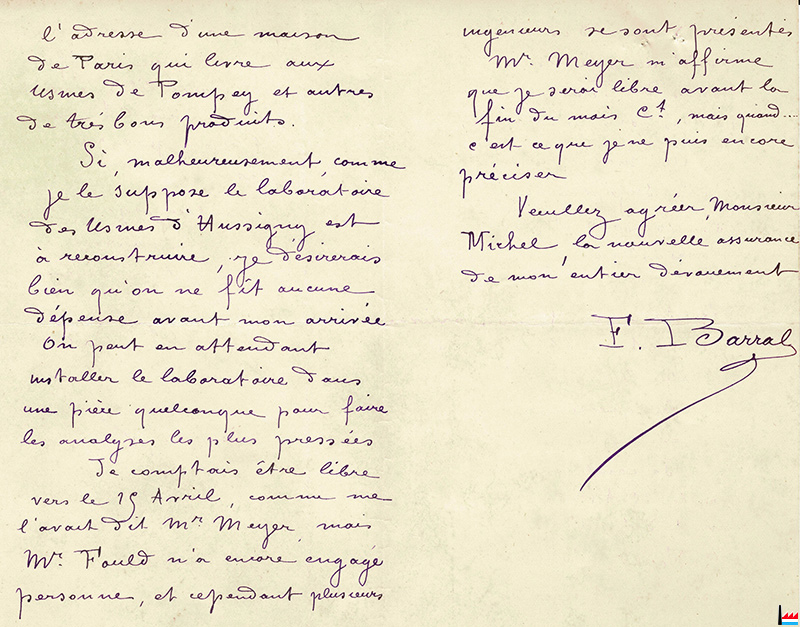 l'adresse d'une maison
de Paris qui livre aux
Usines de Pompey et autres
de très bons produits.
Si, malheureusement, comme
je le suppose le laboratoire
des Usines d'Hussigny est
à reconstruire, je désirerais
bien qu'on ne fît aucune
dépense avant mon arrivée
On peut en attendant
installer le laboratoire dans
une pièce quelconque pour faire
les analyses les plus pressées
Je comptais être libre
vers le 15 Avril, comme me
l'avait dit Mr Meyer, mais
Mr. Fould n'a encore engagé
personne, et cependant plusieurs
ingénieurs se sont présentés
Mr. Meyer m'affirme
que je serai libre avant la
fin du mais Ct, mais quand....
c'est ce que je ne puis encore
préciser
Veuillez agréer, Monsieur
Michel la nouvelle assurance
de mon entier dévouement
F. Barral